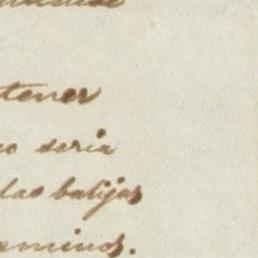 tener
seria
las balijas
caminos.